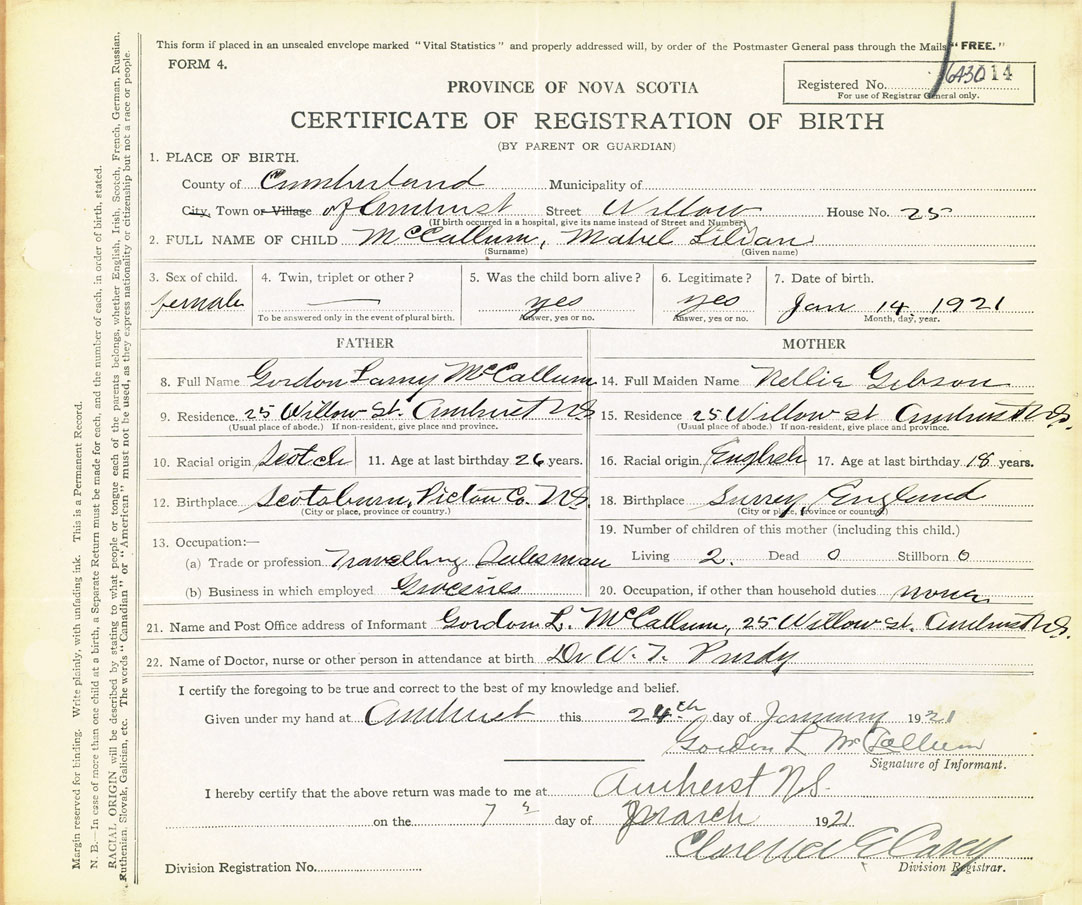 This form if placed in an unsealed envelope marked "Vital Statistics" and properly addressed will, by order of the Postmaster General pass through the Mails "FREE."
FORM 4.
Registered No. 14
For use of Registrar General only.
PROVINCE OF NOVA SCOTIA
CERTIFICATE OF REGISTRATION OF BIRTH
(BY PARENT OR GUARDIAN)
1. PLACE OF BIRTH.
County of Cumberland Municipality of
City, Town or Village of Amhurst Street Willow House No. 25
(If birth occurred in a hospital, give its name instead of Street and Number)
2. FULL NAME OF CHILD McCallum, Mabel Lilian
(Surname) (Given name)
3. Sex of child. 4. Twin, triplet or other? 5. Was the child born alive? 6. Legitimate? 7. Date of birth.
female yes yes Jan 14, 1921
To be answered only in the event of plural birth. Answer, yes or no. Answer, yes or no. Month, day, year.
FATHER MOTHER
8. Full Name Gordon McCallum 14. Full Maiden Name Nellie Gibson
9. Residence. 25 Willow St. Amhurst N.S. 15. Residence 25 Willow St Amhurst N.S.
(Usual place of abode.) If non-resident, give place and province. (Usual place of abode.) If non-resident, give place and province.
10. Racial origin Scotch 11. Age at last birthday 26 years. 16. Racial origin English 17. Age at last birthday 18 years.
12. Birthplace Scotsburn, Pictou Co. N.S. 18. Birthplace Surrey, England
(City or place, province or country.) (City or place, province or country)
13. Occupation:— 19. Number of children of this mother (including this child.)
(a) Trade or profession Travelling Salesman Living 2. Dead 0 Stillborn 0
(b) Business in which employed Groceries 20. Occupation, if other than household duties none
21. Name and Post Office address of Informant Gordon L. McCallum, 25 Willow St. Amhurst N.S.
22. Name of Doctor, nurse or other person in attendance at birth Dr W. T. Purdy
I certify the foregoing to be true and correct to the best of my knowledge and belief.
Given under my hand at Amhurst this 24th day of January 1921
Gordon L McCallum
Signature of Informant.
I hereby certify that the above return was made to me at Amherst N.S.
on the 7th day of March 1921
Clarence E Casey
Division Registration No. Division Registrar.
Margin reserved for binding. Write plainly, with unfading ink. This is a Permanent Record.
N. B.—In case of more than one child at a birth, a Separate Return must be made for each, and the number of each, in order of birth, stated.
RACIAL ORIGIN will be described by stating to what people or tongue each of the parents belongs, whether English, Irish, Scotch, French, German, Russian,
Ruthenian, Slovak, Galician, etc. The words "Canadian" or "American" must not be used, as they express nationality or citizenship but not a race or people.